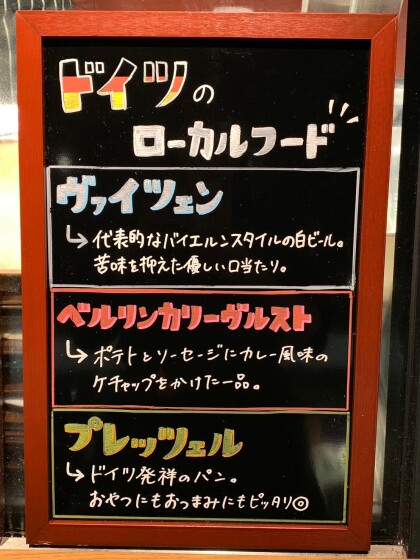 ドイツの
ローカルフード
ヴァイツェン
↳代表的なバイエルンスタイルの白ビール。
苦味を抑えた優しい口当たり。
ベルリンカリーヴルスト
↳ポテトとソーセージにカレー風味の
ケチャップをかけた一品。
プレッツェル
↳ドイツ発祥のパン。
おやつにもおつまみにもピッタリ◎